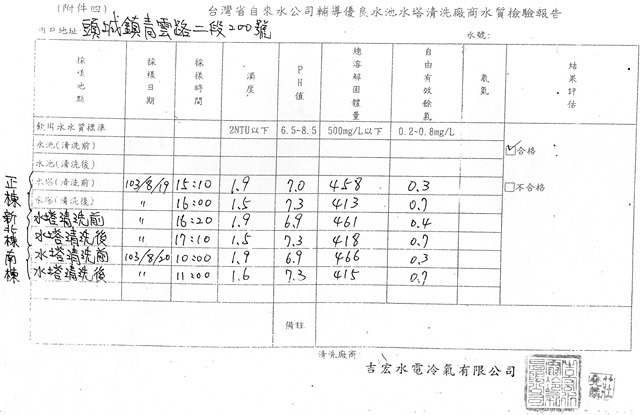 (附件四)
台灣省自來水公司輔導優良水池水塔清洗廠商水質檢驗報告
用戶地址:頭城鎮青雲路二段200號 水號:
採樣地點 採樣日期 採樣時間 濁度 PH值 總溶解固體量 自由有效餘氯 氨氮 結果評估
飲用水水質標準 2NTU以下 6.5~8.5 500mg/L以下 0.2~0.8mg/L
水池(清洗前) ☑合格
水池(清洗後)
正棟 水塔(清洗前) 103/8/19 15:10 1.9 7.0 458 0.3 □不合格
水塔(清洗後) 〃 16:00 1.5 7.3 413 0.7
新北棟 水塔清洗前 〃 16:20 1.9 6.9 461 0.4
水塔清洗後 〃 17:10 1.5 7.3 418 0.7
南棟 水塔清洗前 103/8/20 10:00 1.9 6.9 466 0.3
水塔清洗後 〃 11:00 1.6 7.3 415 0.7
備註
清洗廠商:
吉宏水電冷氣有限公司